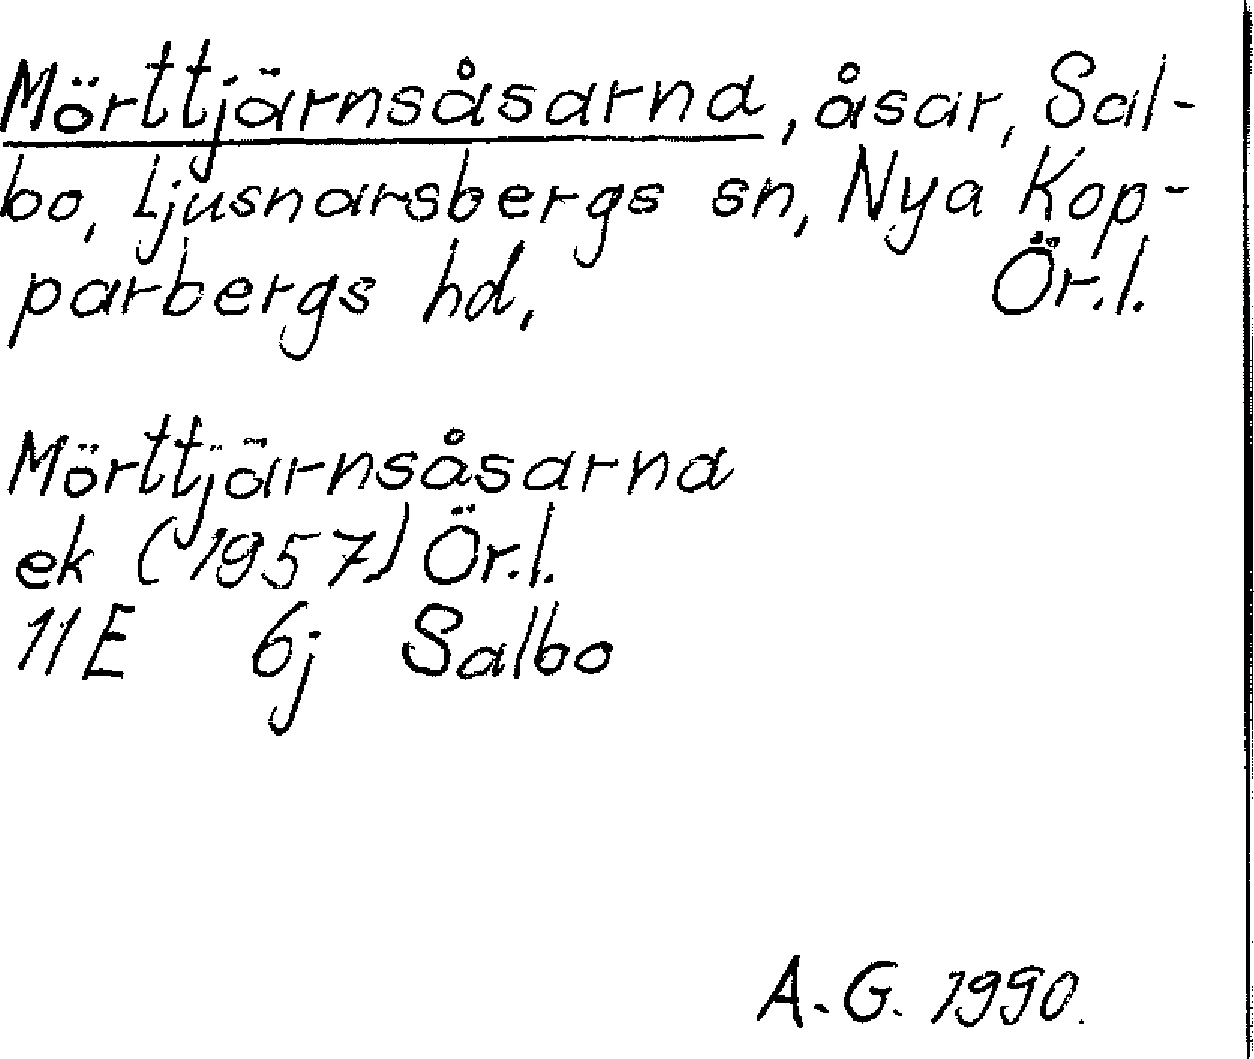 Mörttjärnsåsarna, åsar, Sal-
bo, Ljusnarsbergs sn, Nya Kop-
parbergs hd, Ör.l.
Mörttjärnsåsarna
ek (1957) Ör.l.
11E 6j Salbo
A.G. 1990.